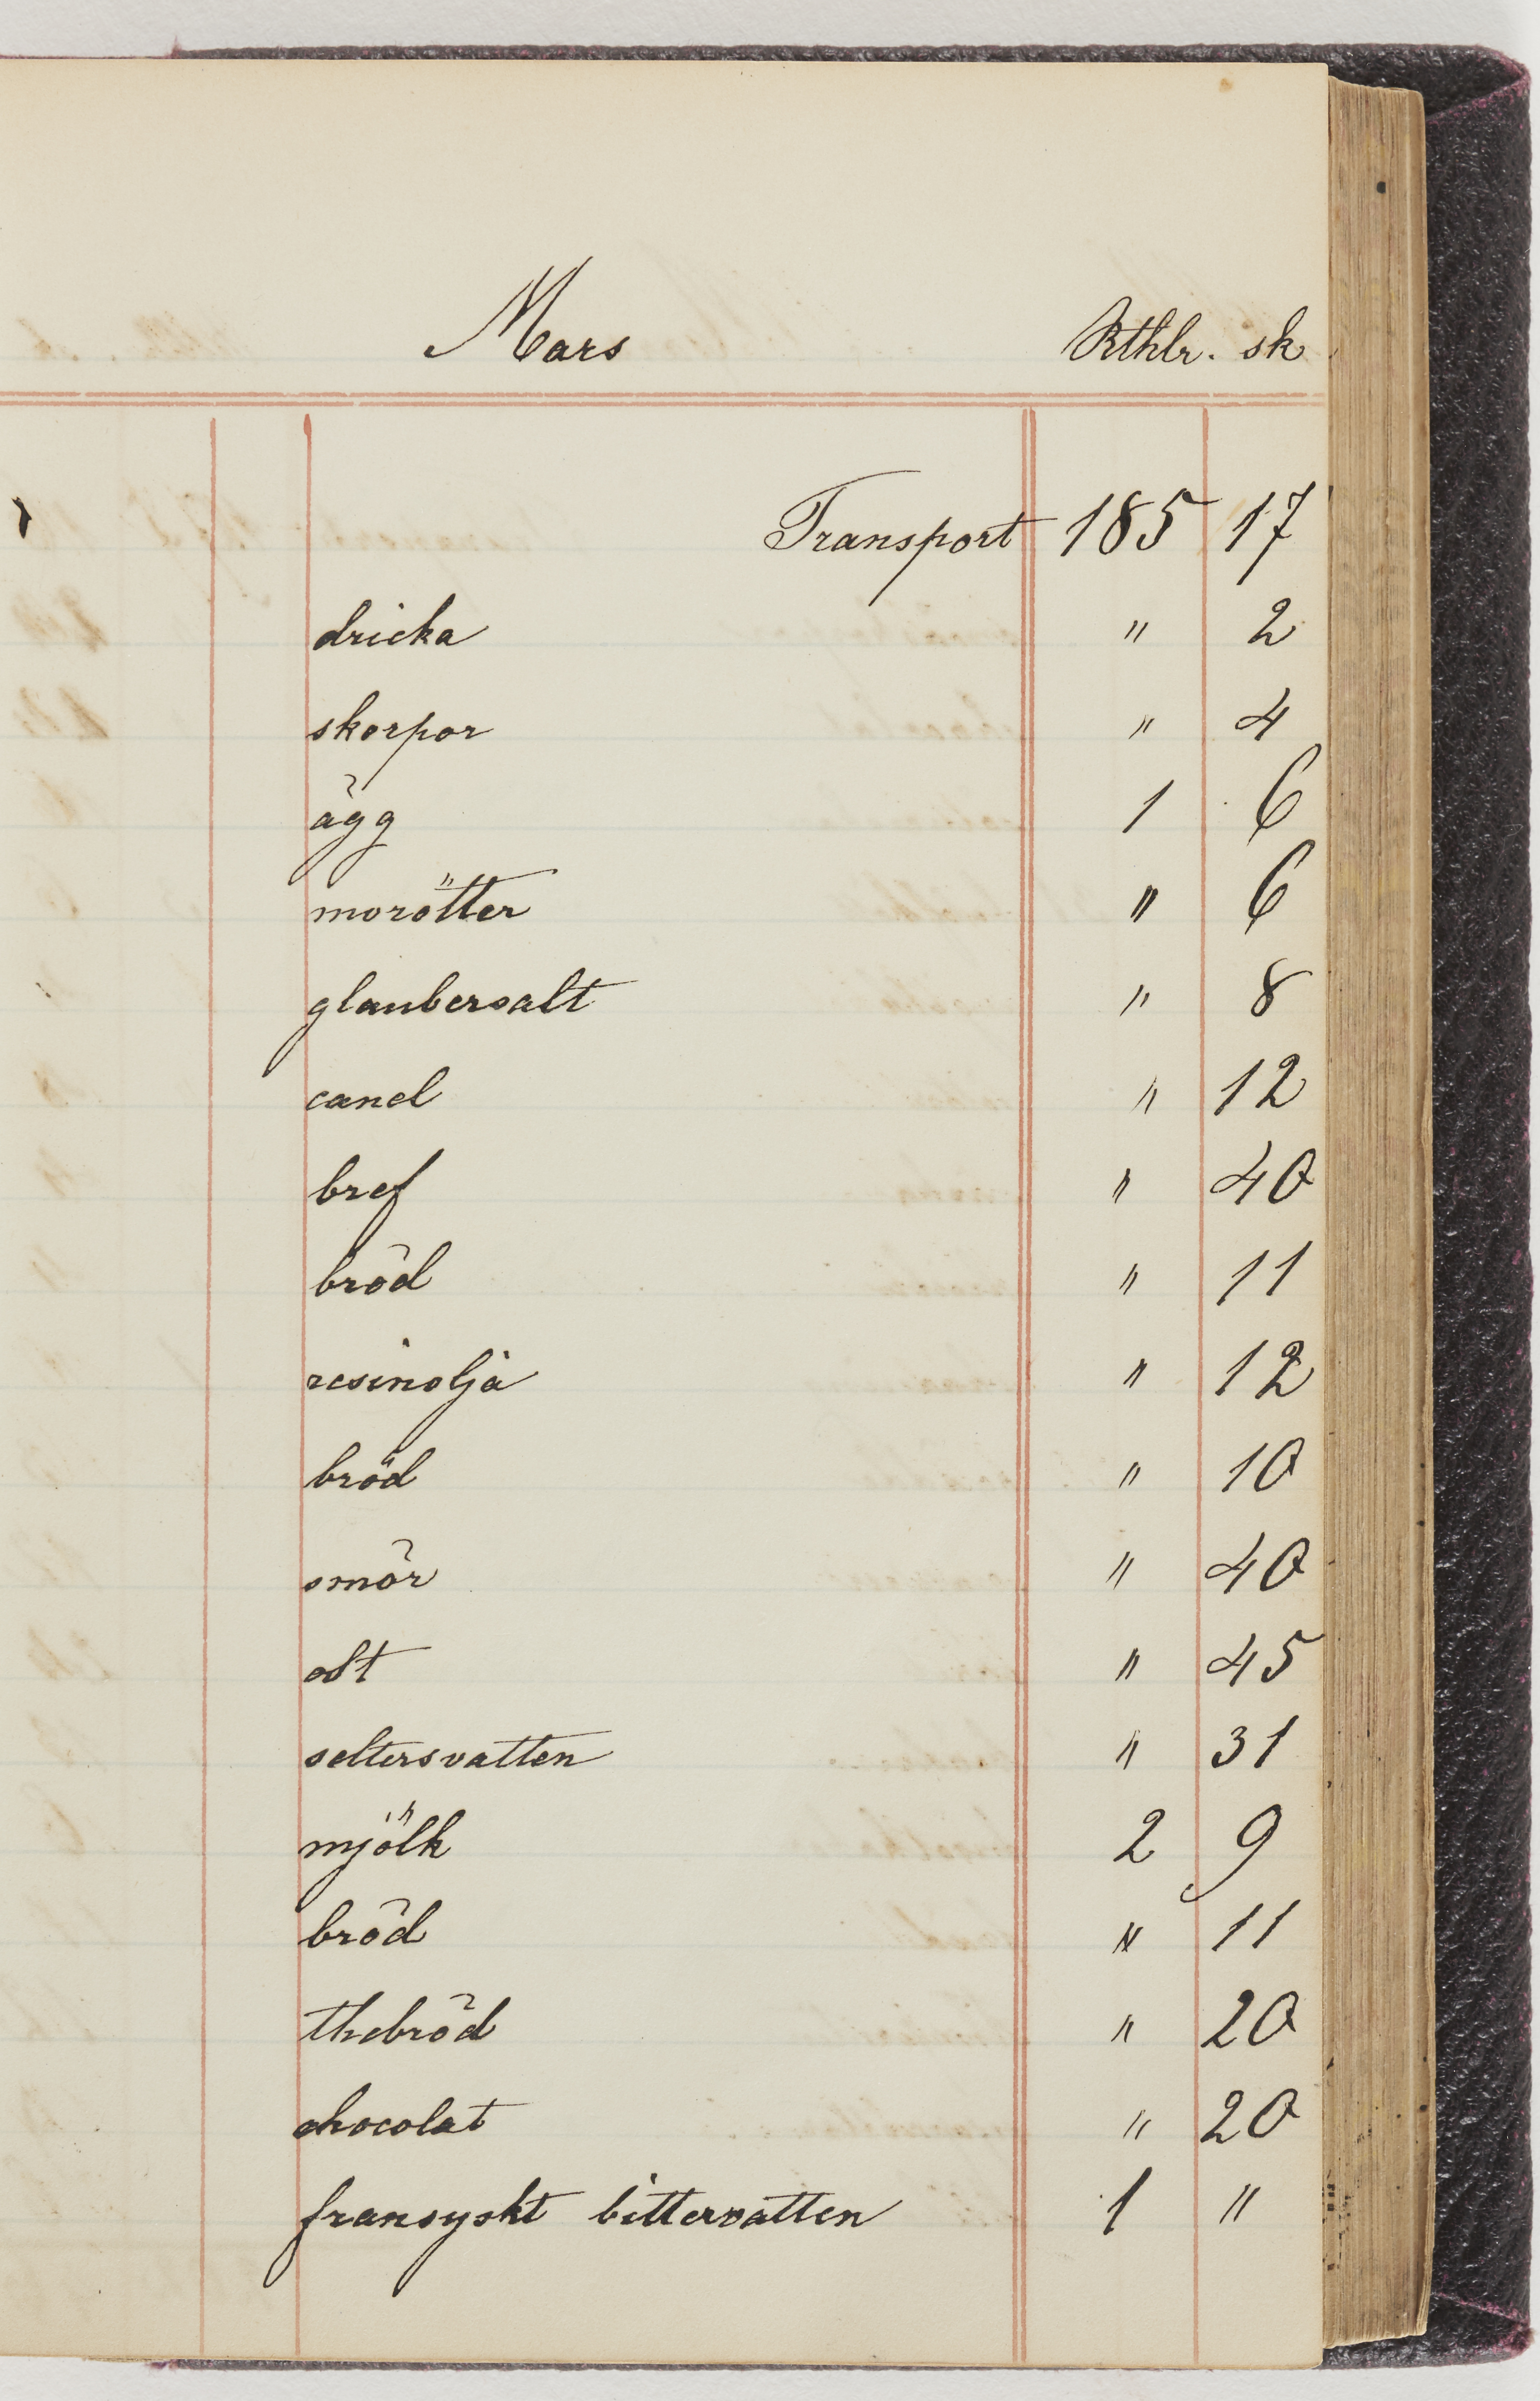 Mars Rthlr. sk
Transport 185 17
dricka " 2
skorpor " 4
ägg 1 6
morötter " 6
glaubersalt " 8
canel " 12
bref " 40
bröd " 11
resinolja " 12
bröd " 10
smör " 40
ost " 45
seltersvatten " 31
mjölk 2 9
bröd " 11
thebröd " 20
chocolat " 20
fransyskt bittervatten 1 "